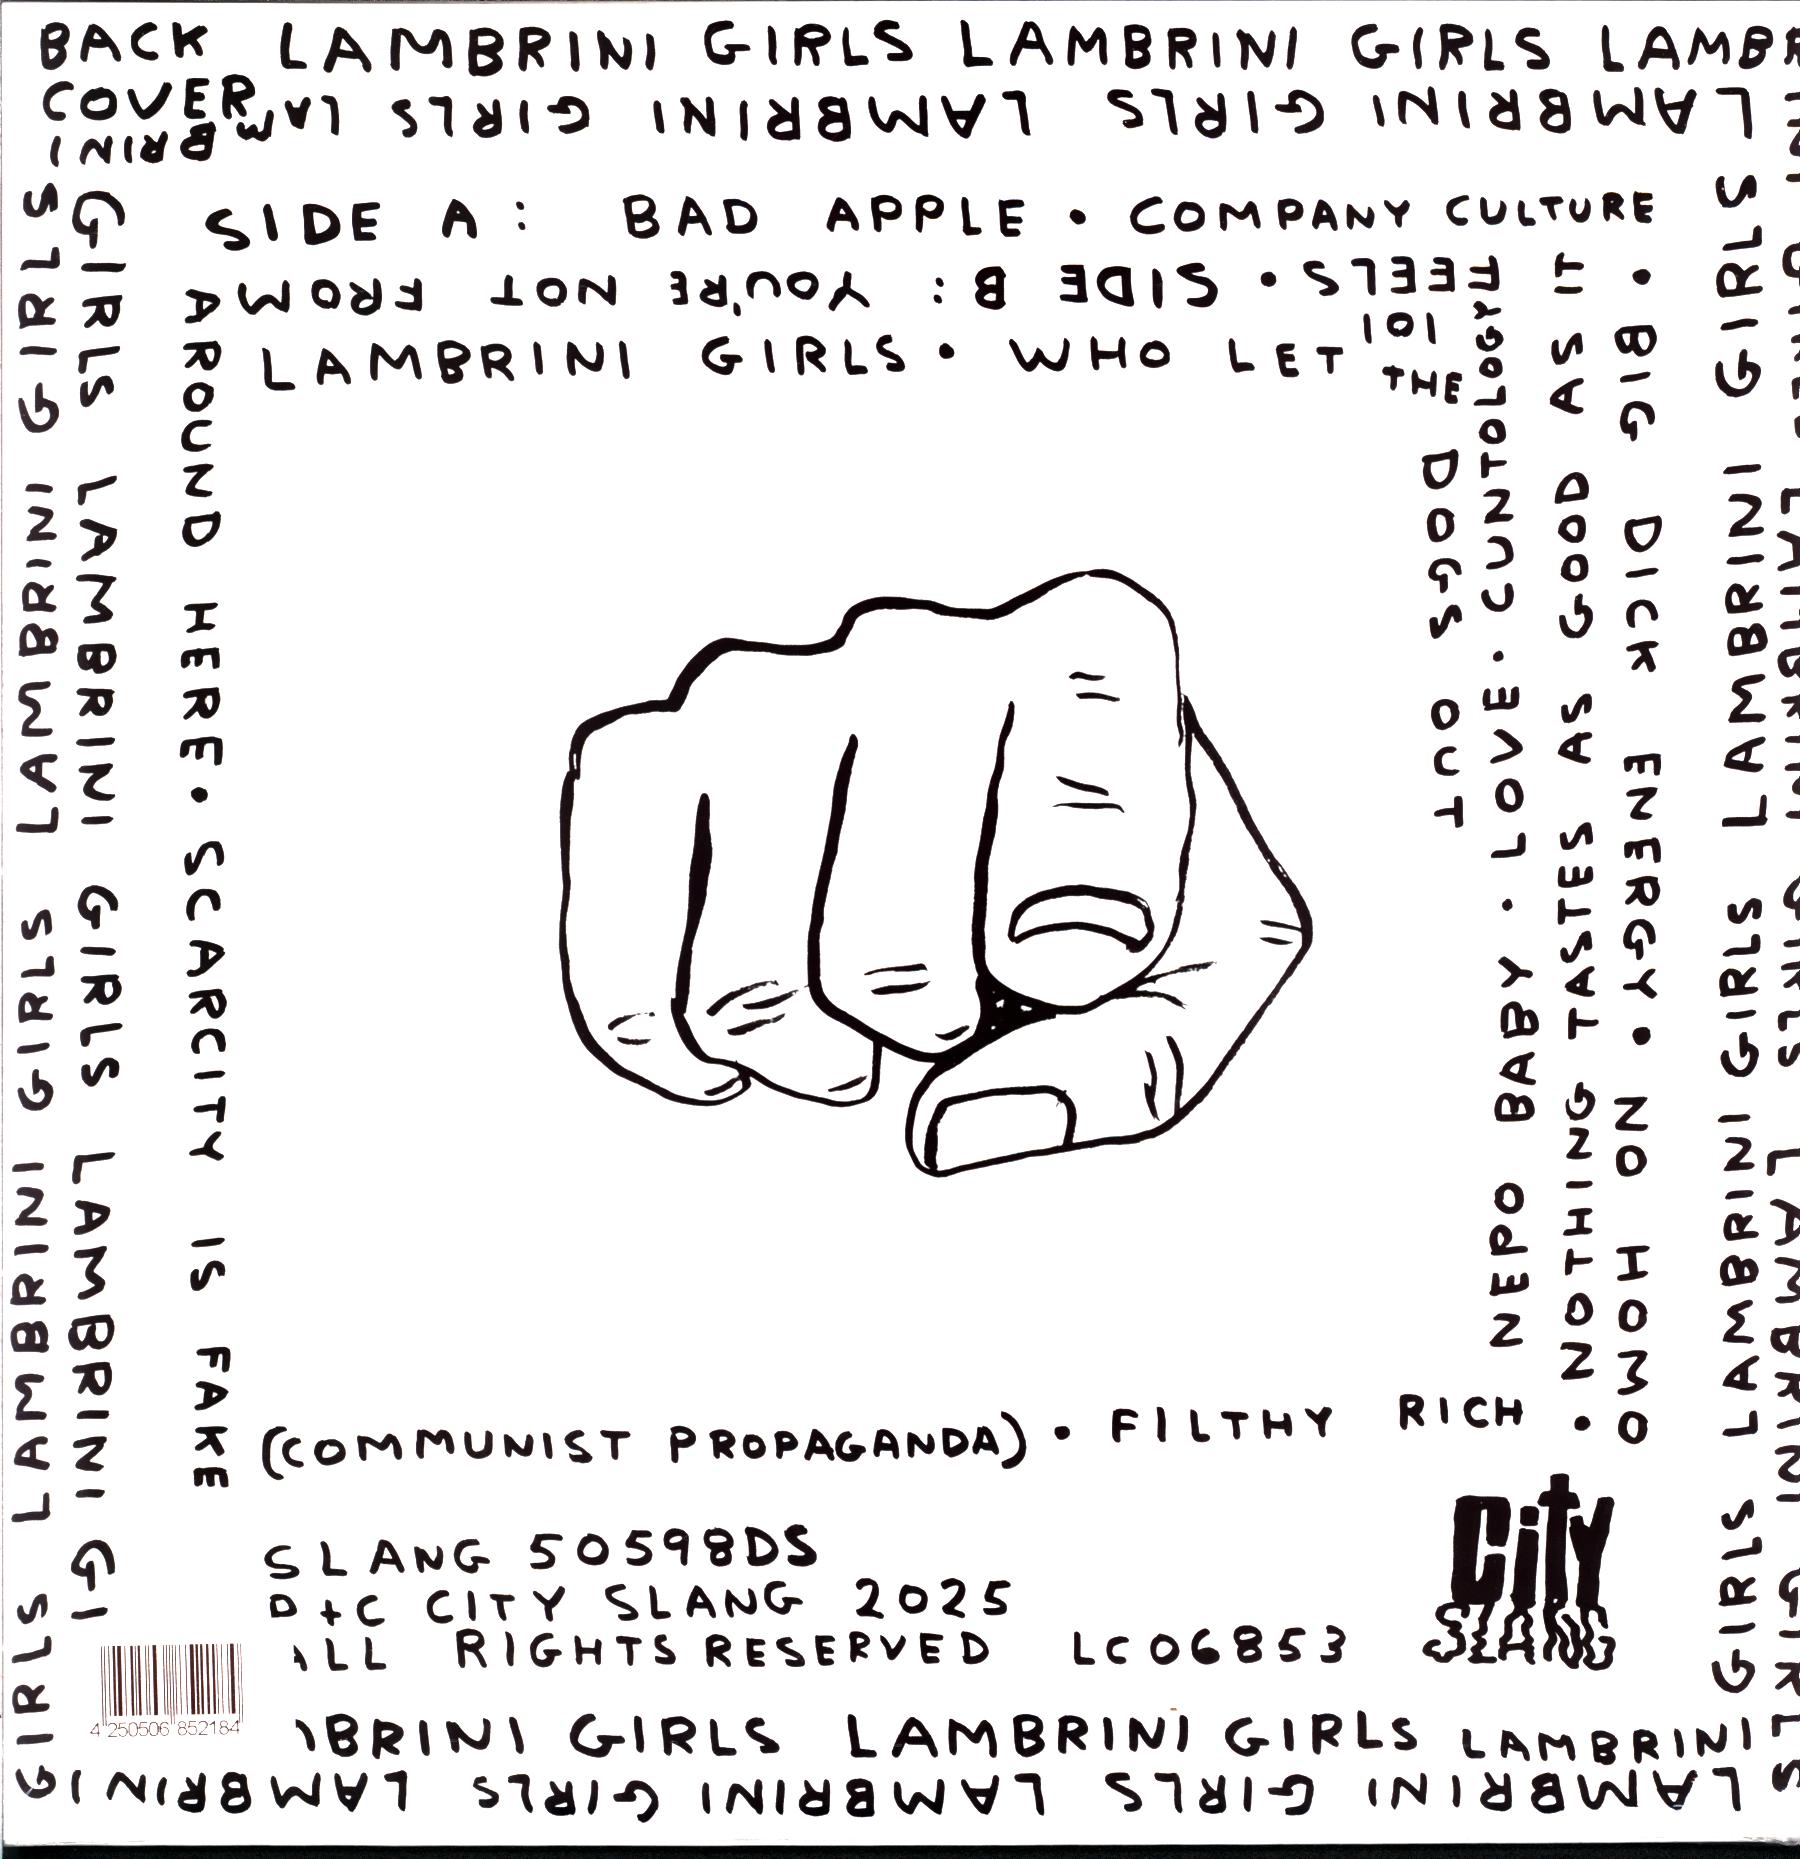 BACK COVER
LAMBRINI GIRLS LAMBRINI GIRLS LAMBR
INI GIRLS LAMBRINI GIRLS LAMBRINI GIRLS
LAMBRINI GIRLS LAMBRINI GIRLS LAMBRINI G
IRLS LAMBRINI GIRLS LAMBRINI GIRLS
GIRLS LAMBRINI GIRLS LAMBRINI GIRLS
LAMBRINI GIRLS LAMBRINI GIRLS LAM
BRINI
GIRLS LAMBRINI GIRLS LAMBRINI GI
BRINI GIRLS LAMBRINI GIRLS LAMBRINI
SIDE A: BAD APPLE • COMPANY CULTURE
• BIG DICK ENERGY • NO HOMO
• NOTHING TASTES AS GOOD AS IT
FEELS • SIDE B: YOU'RE NOT FROM
AROUND HERE • SCARCITY IS FAKE
(COMMUNIST PROPAGANDA) • FILTHY RICH
NEPO BABY • LOVE • CUNTOLOGY
101
LAMBRINI GIRLS • WHO LET THE
DOGS OUT
SLANG 50598DS
P+C CITY SLANG 2025
ALL RIGHTS RESERVED LC06853
CiTY
SLANG
4 250506 852184